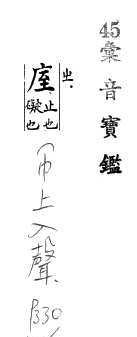 45彙音寶鑑
ㄓˋ
庢止也礙也
(巾上入聲、P330